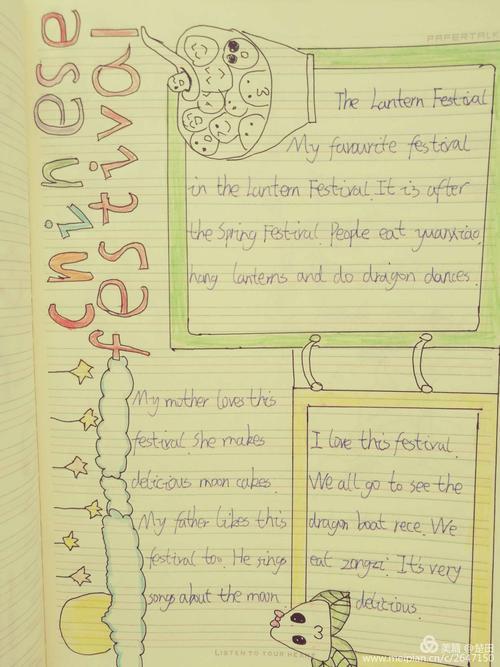 chinese
festival
PAPERTALK
The Lantern Festival
My favourite festival
in the Lantern Festival. It is after
the Spring Festival. People eat yuanxiao,
hang lanterns and do dragon dances.
My mother loves this
festival. She makes
delicious moon cakes.
My father likes this
festival too. He sings
songs about the moon.
I love this festival.
We all go to see the
dragon boat rece. We
eat zongzi. It's very
delicious.
LISTEN TO YOUR HEART
美篇 @楚田
www.meipian.cn/c/2647150